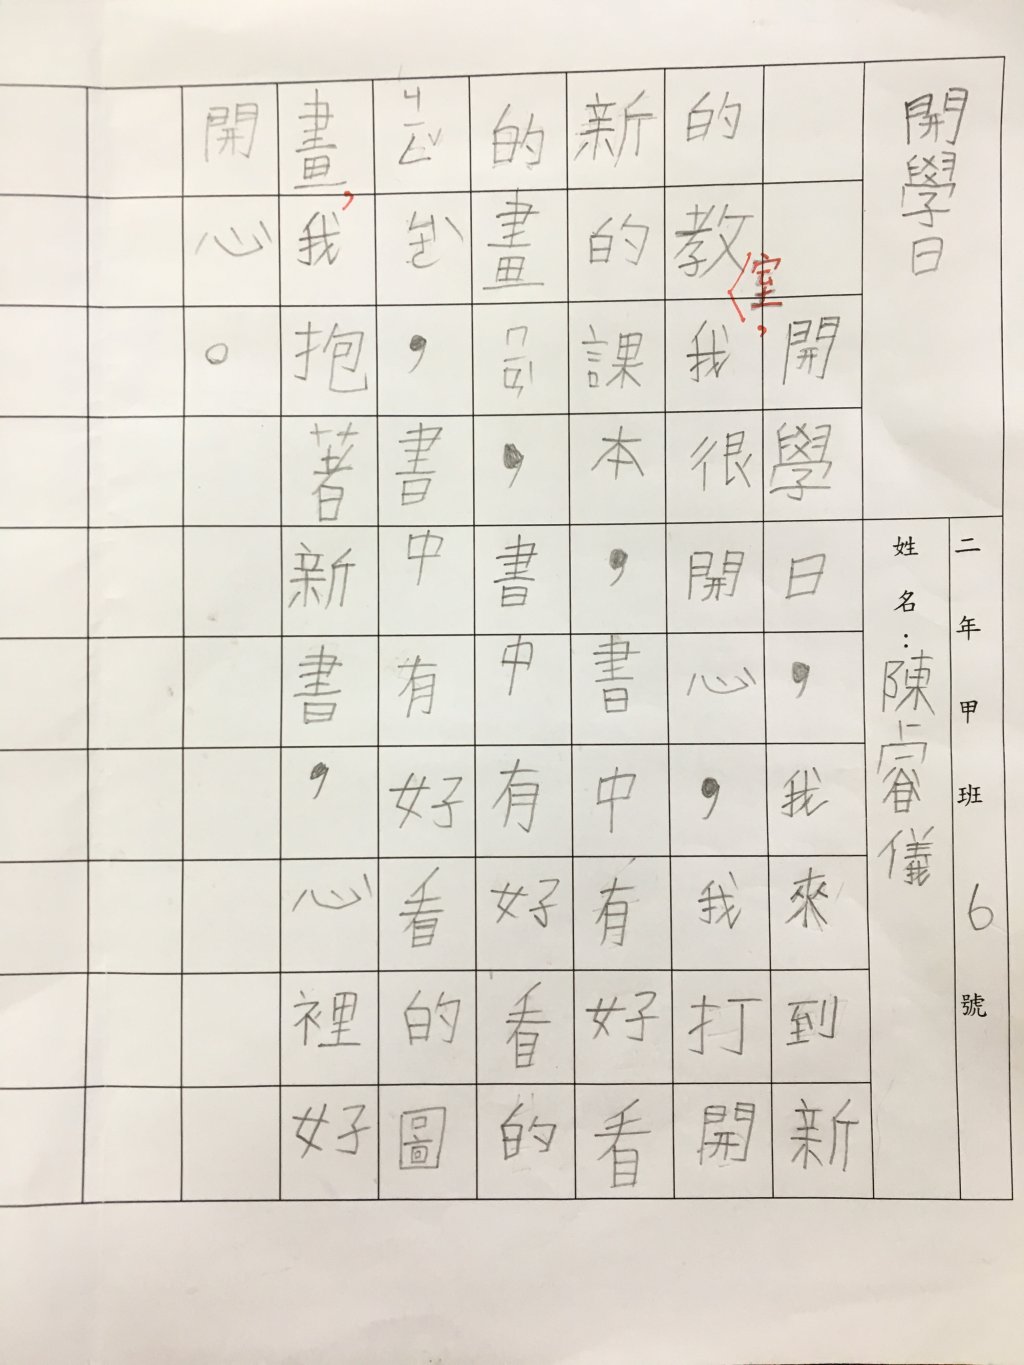 開學日
二年甲班 6 號
姓名:陳睿儀
開學日,我來到新
的教室,我很開心,我打開
新的課本,書中有好看
的畫,書中有好看的
,書中有好看的圖
畫,我抱著新書,心裡好
開心。